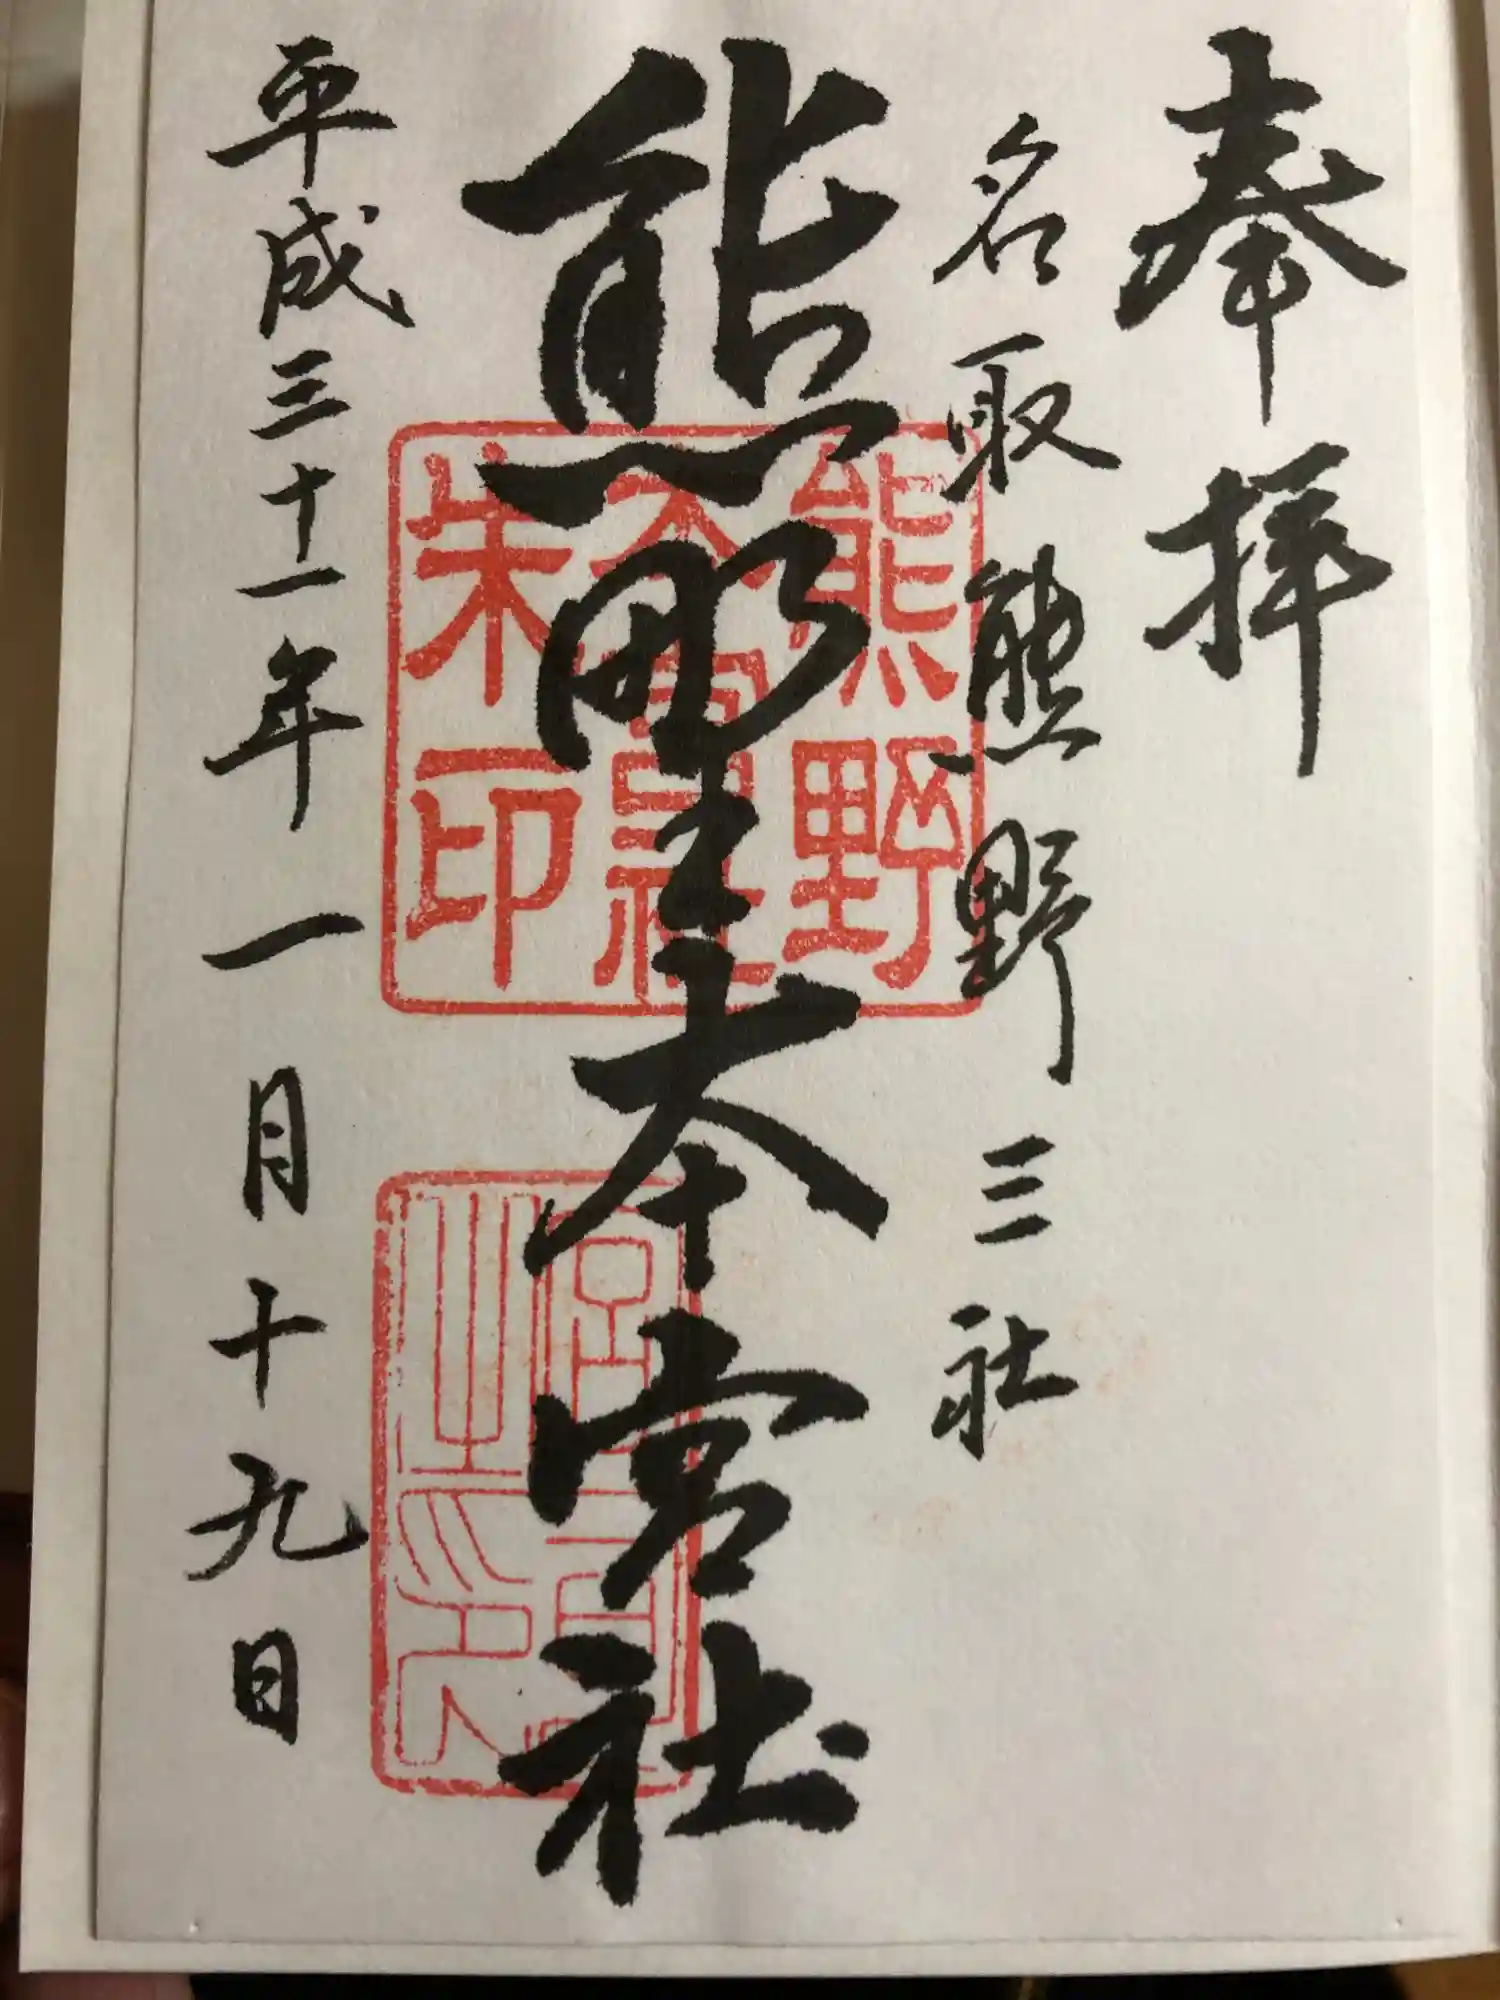 奉拝
名取熊野三社
熊野本宮社
平成三十一年一月十九日
熊野
本宮社
朱印